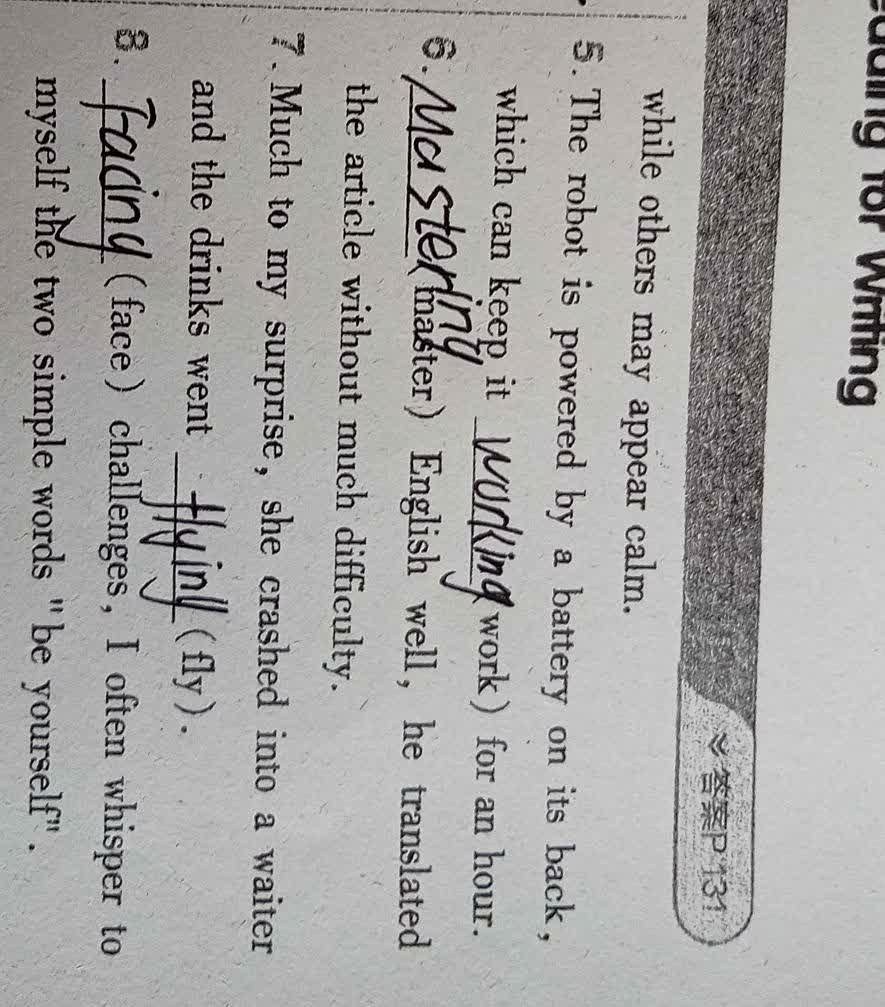 for Writing
答案P131
while others may appear calm.
5. The robot is powered by a battery on its back,
which can keep it working (work) for an hour.
6. Mastering (master) English well, he translated
the article without much difficulty.
7. Much to my surprise, she crashed into a waiter
and the drinks went flying (fly).
8. Facing (face) challenges, I often whisper to
myself the two simple words "be yourself".